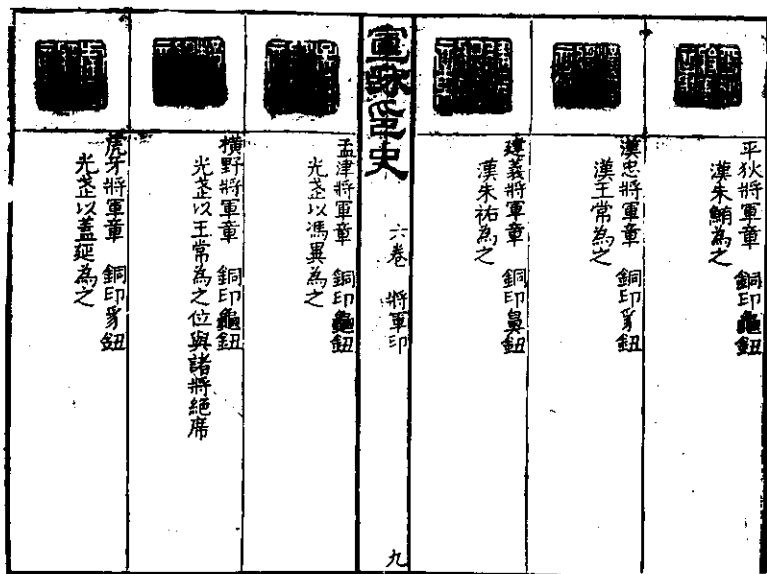 平狄將軍章　銅印龜鈕
漢朱鮪為之
漢忠將軍章　銅印豸鈕
漢王常為之
建義將軍章　銅印鼻鈕
漢朱祐為之
宣龢印史　六卷　將軍印　九
孟津將軍章　銅印龜鈕
光武以馮異為之
橫野將軍章　銅印龜鈕
光武以王常為之位與諸將絕席
虎牙將軍章　銅印豸鈕
光武以蓋延為之